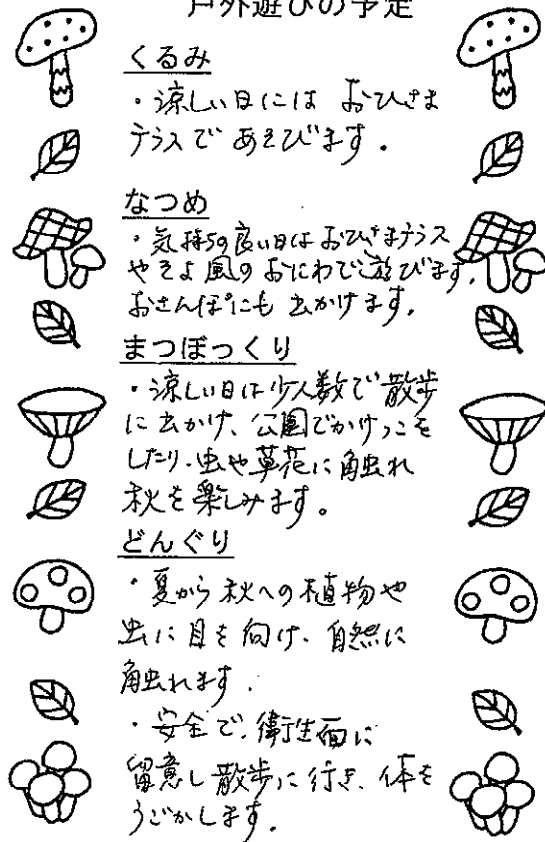 戸外遊びの予定
くるみ
・涼しい日には おひさま
テラスで あそびます.
なつめ
・気持ちの良い日は おひさまテラス
やそよ風のおにわで遊びます.
おさんぽにも 出かけます.
まつぼっくり
・涼しい日は少人数で散歩
に出かけ、公園でかけっこを
したり、虫や草花に触れ
秋を楽しみます。
どんぐり
・夏から秋への植物や
虫に目を向け、自然に
触れます.
・安全で、衛生面に
留意し散歩に行き、体を
うごかします.